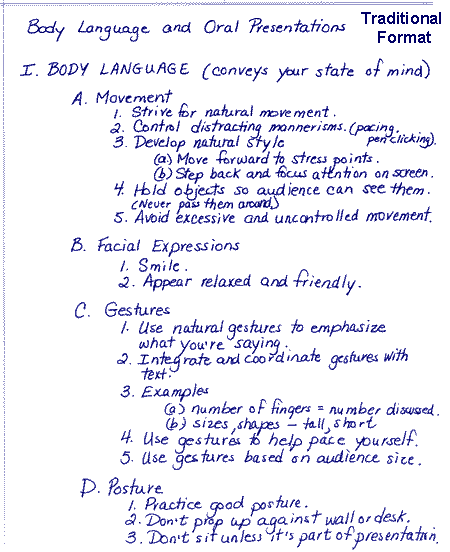 Body Language and Oral Presentations
Traditional
Format
I. BODY LANGUAGE (conveys your state of mind)
A. Movement
1. Strive for natural movement.
2. Control distracting mannerisms. (pacing,
pen clicking).
3. Develop natural style
(a) Move forward to stress points.
(b) Step back and focus attention on screen.
4. Hold objects so audience can see them.
(Never pass them around)
5. Avoid excessive and uncontrolled movement.
B. Facial Expressions
1. Smile.
2. Appear relaxed and friendly.
C. Gestures
1. Use natural gestures to emphasize
what you're saying.
2. Integrate and coordinate gestures with
text.
3. Examples
(a) number of fingers = number discussed.
(b) sizes, shapes - tall, short
4. Use gestures to help pace yourself.
5. Use gestures based on audience size.
D. Posture
1. Practice good posture.
2. Don't prop up against wall or desk.
3. Don't sit unless it's part of presentation.